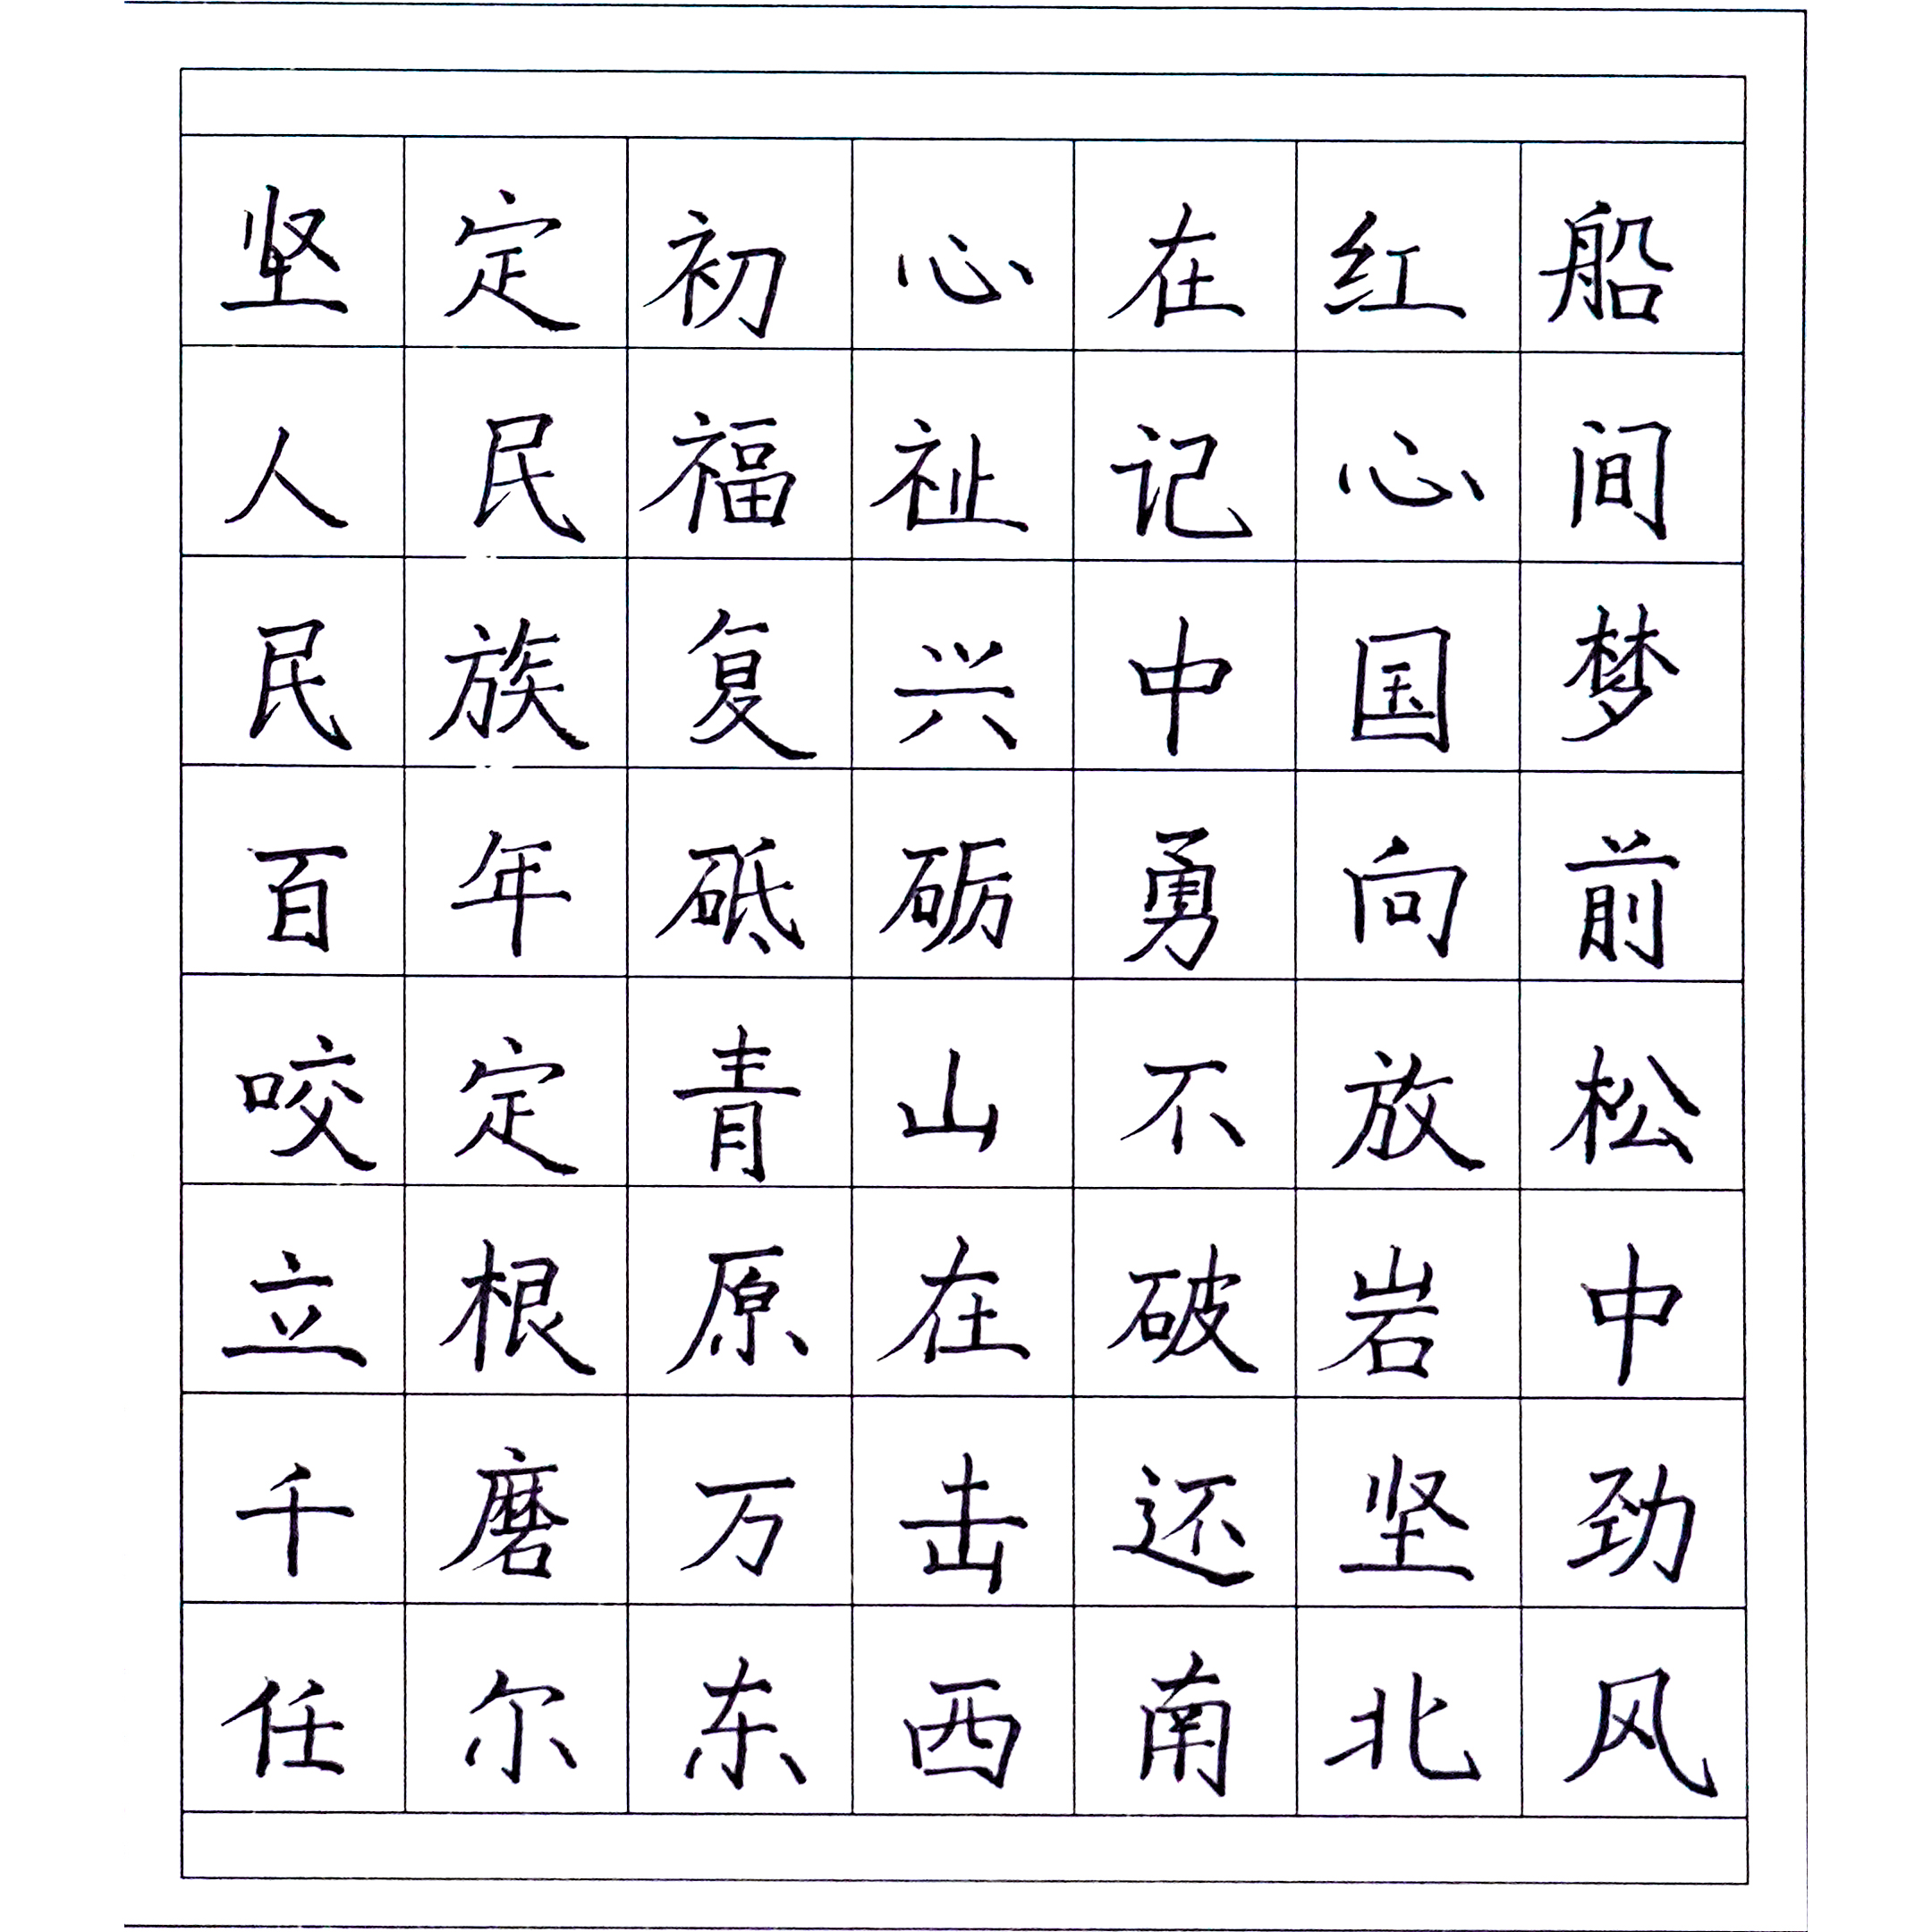 坚定初心在红船
人民福祉记心间
民族复兴中国梦
百年砥砺勇向前
咬定青山不放松
立根原在破岩中
千磨万击还坚劲
任尔东西南北风